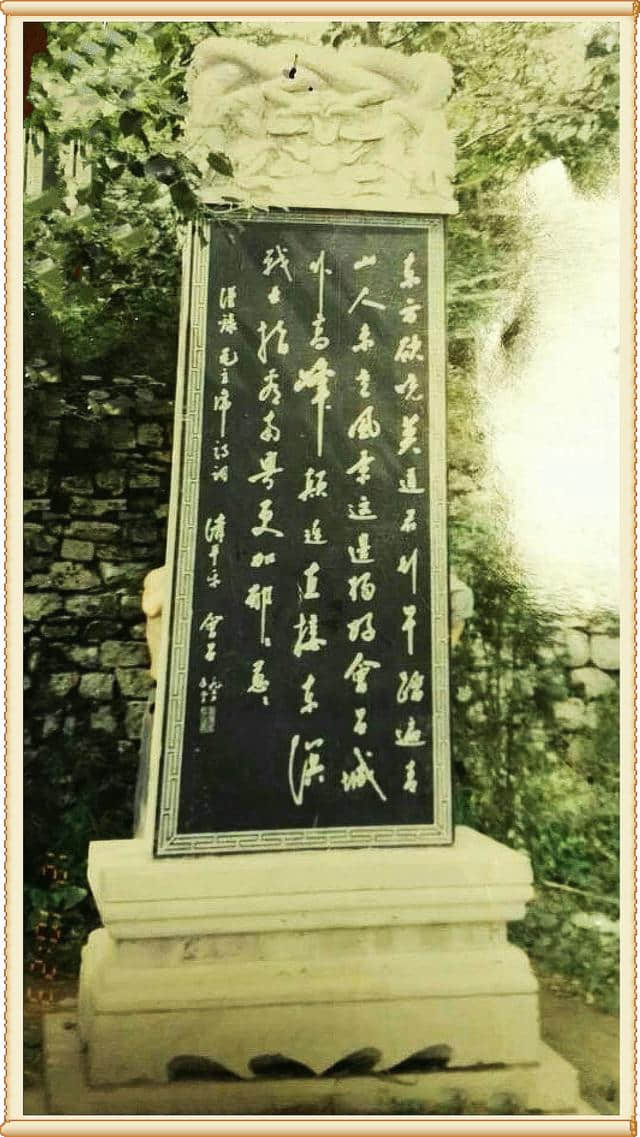 东方欲晓莫道君行早踏遍青
山人未老風景這邊独好會昌城
外高峰顛连直接东溟
战士指看南粤更加郁〻葱〻
毛主席诗词 清平乐 會昌